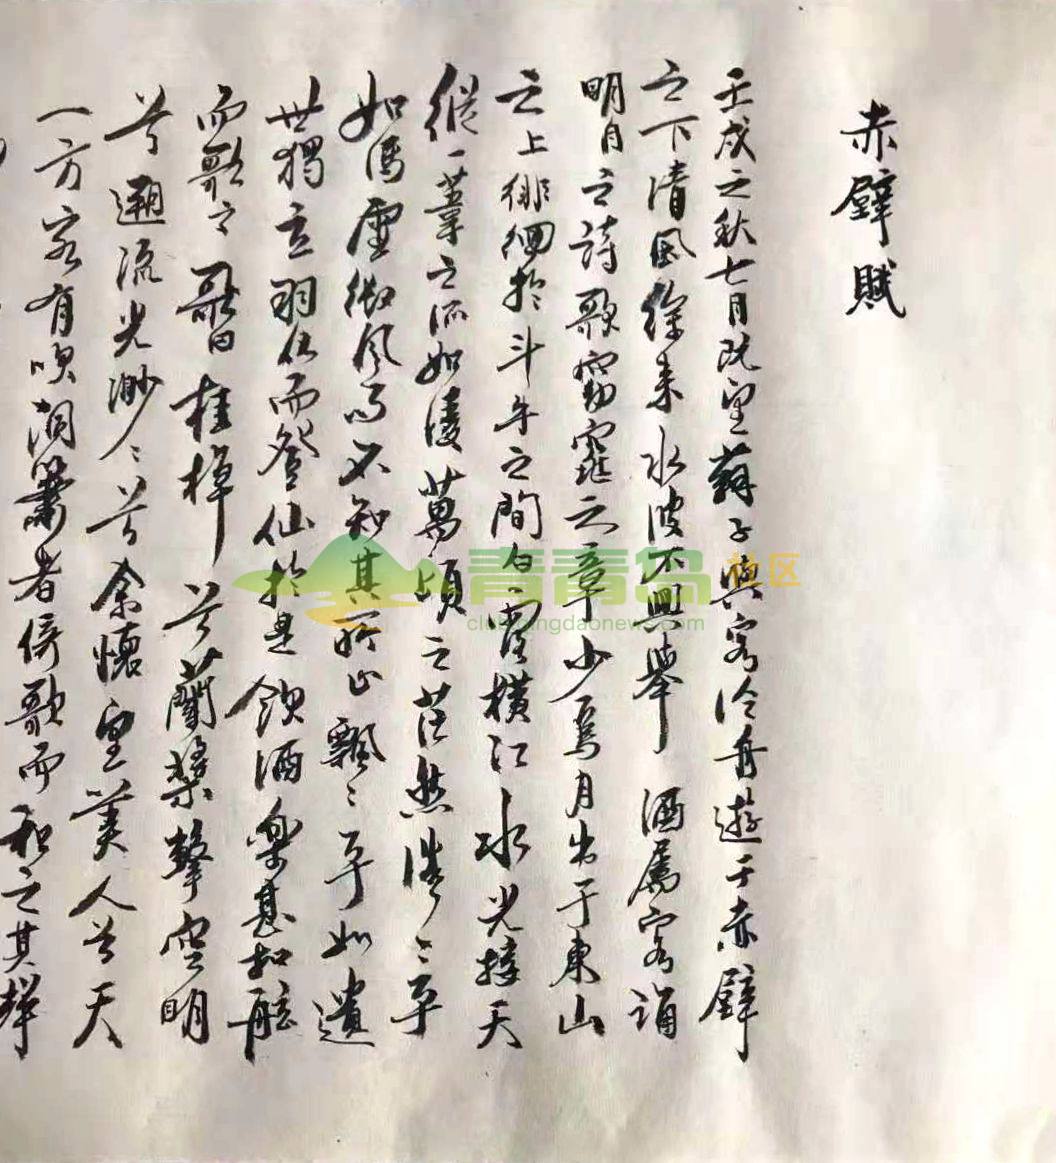 赤壁賦
壬戌之秋七月既望蘇子與客泛舟遊于赤壁
之下清風徐来水波不興舉酒屬客誦
明月之詩歌窈窕之章少焉月出于東山
之上徘徊於斗牛之間白露橫江水光接天
縱一葦之所如淩萬頃之茫然浩〻乎
如馮虛御風而不知其所止飄〻乎如遺
世獨立羽化而登仙於是飲酒樂甚扣舷
而歌之歌曰桂棹兮蘭槳擊空明
兮遡流光渺〻兮余懷望美人兮天
一方客有吹洞簫者倚歌而和之其聲
青青岛社区
club.qingdaonews.com